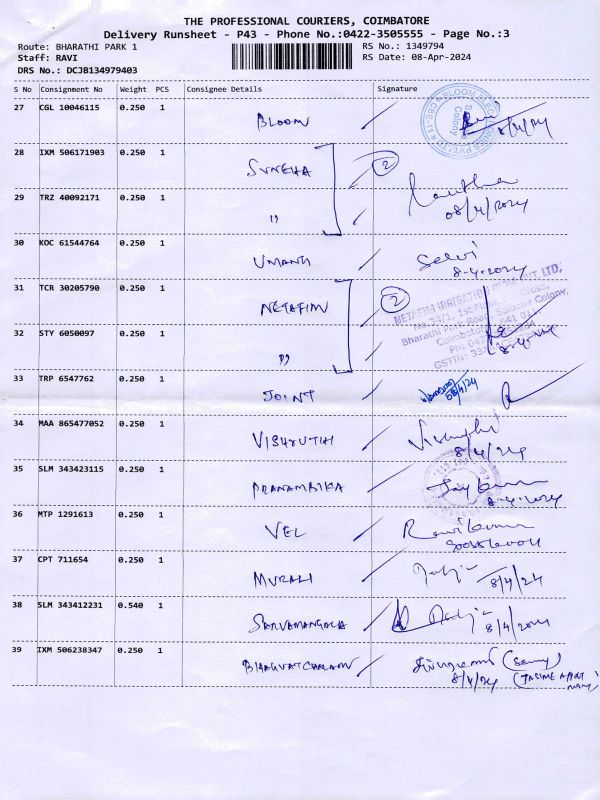 THE PROFESSIONAL COURIERS, COIMBATORE
Delivery Runsheet - P43 - Phone No.:0422-3505555 - Page No.:3
Route: BHARATHI PARK 1
RS No.: 1349794
Staff: RAVI
RS Date: 08-Apr-2024
DRS No.: DCJB134979403
S No Consignment No Weight PCS Consignee Details Signature
27 CGL 10046115 0.250 1 BLOOM 8/4/24
28 IXM 506171903 0.250 1 SUNEHA 2
29 TRZ 40092171 0.250 1 " 08/4/2024
30 KOC 61544764 0.250 1 UMANG Selvi
8-4-2024
31 TCR 30205790 0.250 1 NETAFIM 2
NETAFIM IRRIGATION PVT. LTD,
Bharathi Park Road, Saibaba Colony,
32 STY 6050097 0.250 1 "
33 TRP 6547762 0.250 1 JOINT 08/4/24
34 MAA 865477052 0.250 1 VISHRUTHI
8/4/24
35 SLM 343423115 0.250 1 PRANAMBIKA
8-4-2024
36 MTP 1291613 0.250 1 VEL
37 CPT 711654 0.250 1 MURALI 8/4/24
38 SLM 343412231 0.540 1 SARVAMANGALA 8/4/2024
39 IXM 506238347 0.250 1
8/4/24